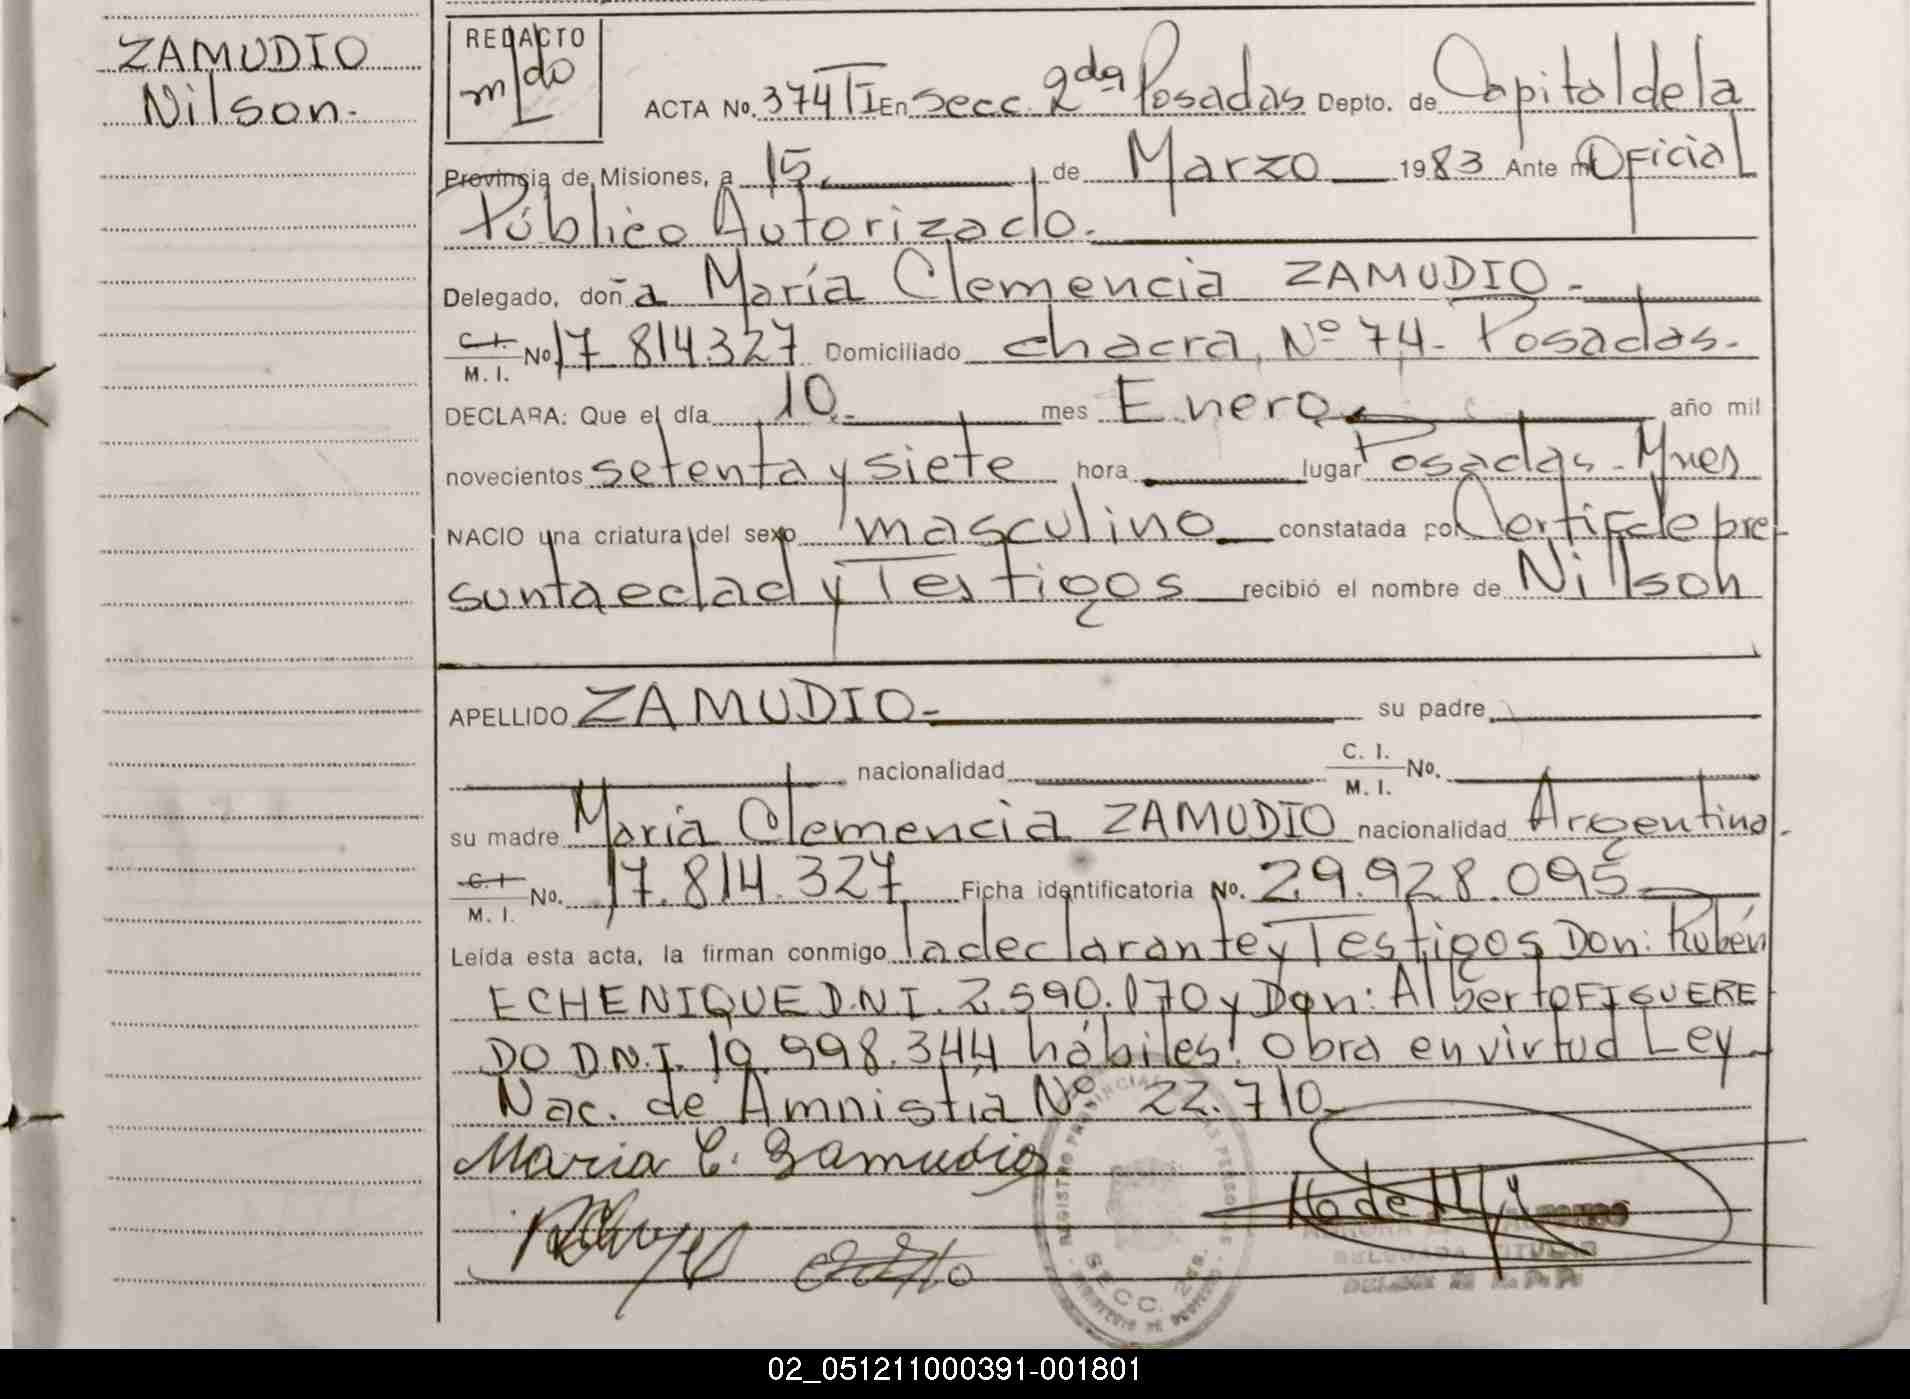 ZAMUDIO
Nilson.
REDACTO
ACTA No. 374 TI En Secc. 2da Posadas Depto. de Capital de la
Provincia de Misiones, a 15 de Marzo 1983 Ante mi Oficial
Público Autorizado.
Delegado, doña María Clemencia ZAMUDIO.
C.I. / M. I. No 17.814.327 Domiciliado chacra, Nº 74- Posadas.
DECLARA: Que el día 10 mes Enero año mil
novecientos setenta y siete hora lugar Posadas. Mnes
NACIO una criatura del sexo masculino constatada por Certif de pre-
sunta edad y Testigos recibió el nombre de Nilson
APELLIDO ZAMUDIO- su padre
nacionalidad C. I. / M. I. No.
su madre María Clemencia ZAMUDIO nacionalidad Argentina.
C.I / M. I. No. 17.814.327 Ficha identificatoria No. 29.928.095
Leída esta acta, la firman conmigo la declarante y Testigos Don: Rubén
ECHENIQUE D.N.I. 2.590.170 y Don: Alberto FIGUERE
DO D.N.I. 19.998.344 hábiles. Obra en virtud Ley
Nac. de Amnistía Nº 22.710
Maria C. Zamudio
SECC. 2da.
02_051211000391-001801